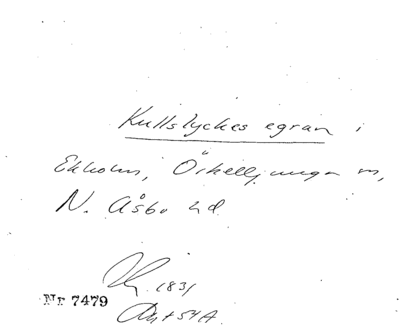 Kullslyckes egran i
Ekholm, Örkelljunga sn,
N. Åsbo hd
1831
Nr 7479